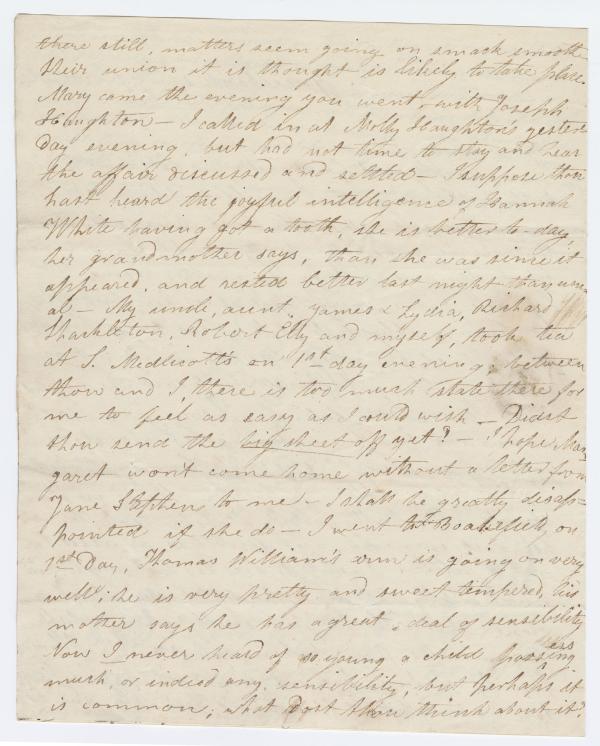 there still, matters seem going on smack smooth
their union it is thought is likely to take place.
Mary came the evening you went with Joseph
Haughton – I called in at Molly Haughton's yester-
day evening, but had not time to stay and hear
the affair discussed and settled – I suppose thou
hast heard the joyful intelligence of Hannah
White having got a tooth, she is better to-day,
her grandmother says, than she was since it
appeared, and rested better last night than usu-
al – My uncle, aunt, James & Lydia, Richard
Shackleton, Robert Elly and myself, took tea
at S. Medlicott's on 1st day evening; between
thou and I, there is too much state there for
me to feel as easy as I could wish – Didst
thou send the big sheet off yet? – I hope Mar-
garet won't come home without a letter from
Jane Stephen to me – I shall be greatly disap-
pointed if she do – I went to on
1st Day, Thomas William's son is going on very
well: he is very pretty and sweet tempered, his
mother says he has a great deal of sensibility
Now I never heard of so young a child possessing
much, or indeed any sensibility, but perhaps it
is common; what dost thou think about it?